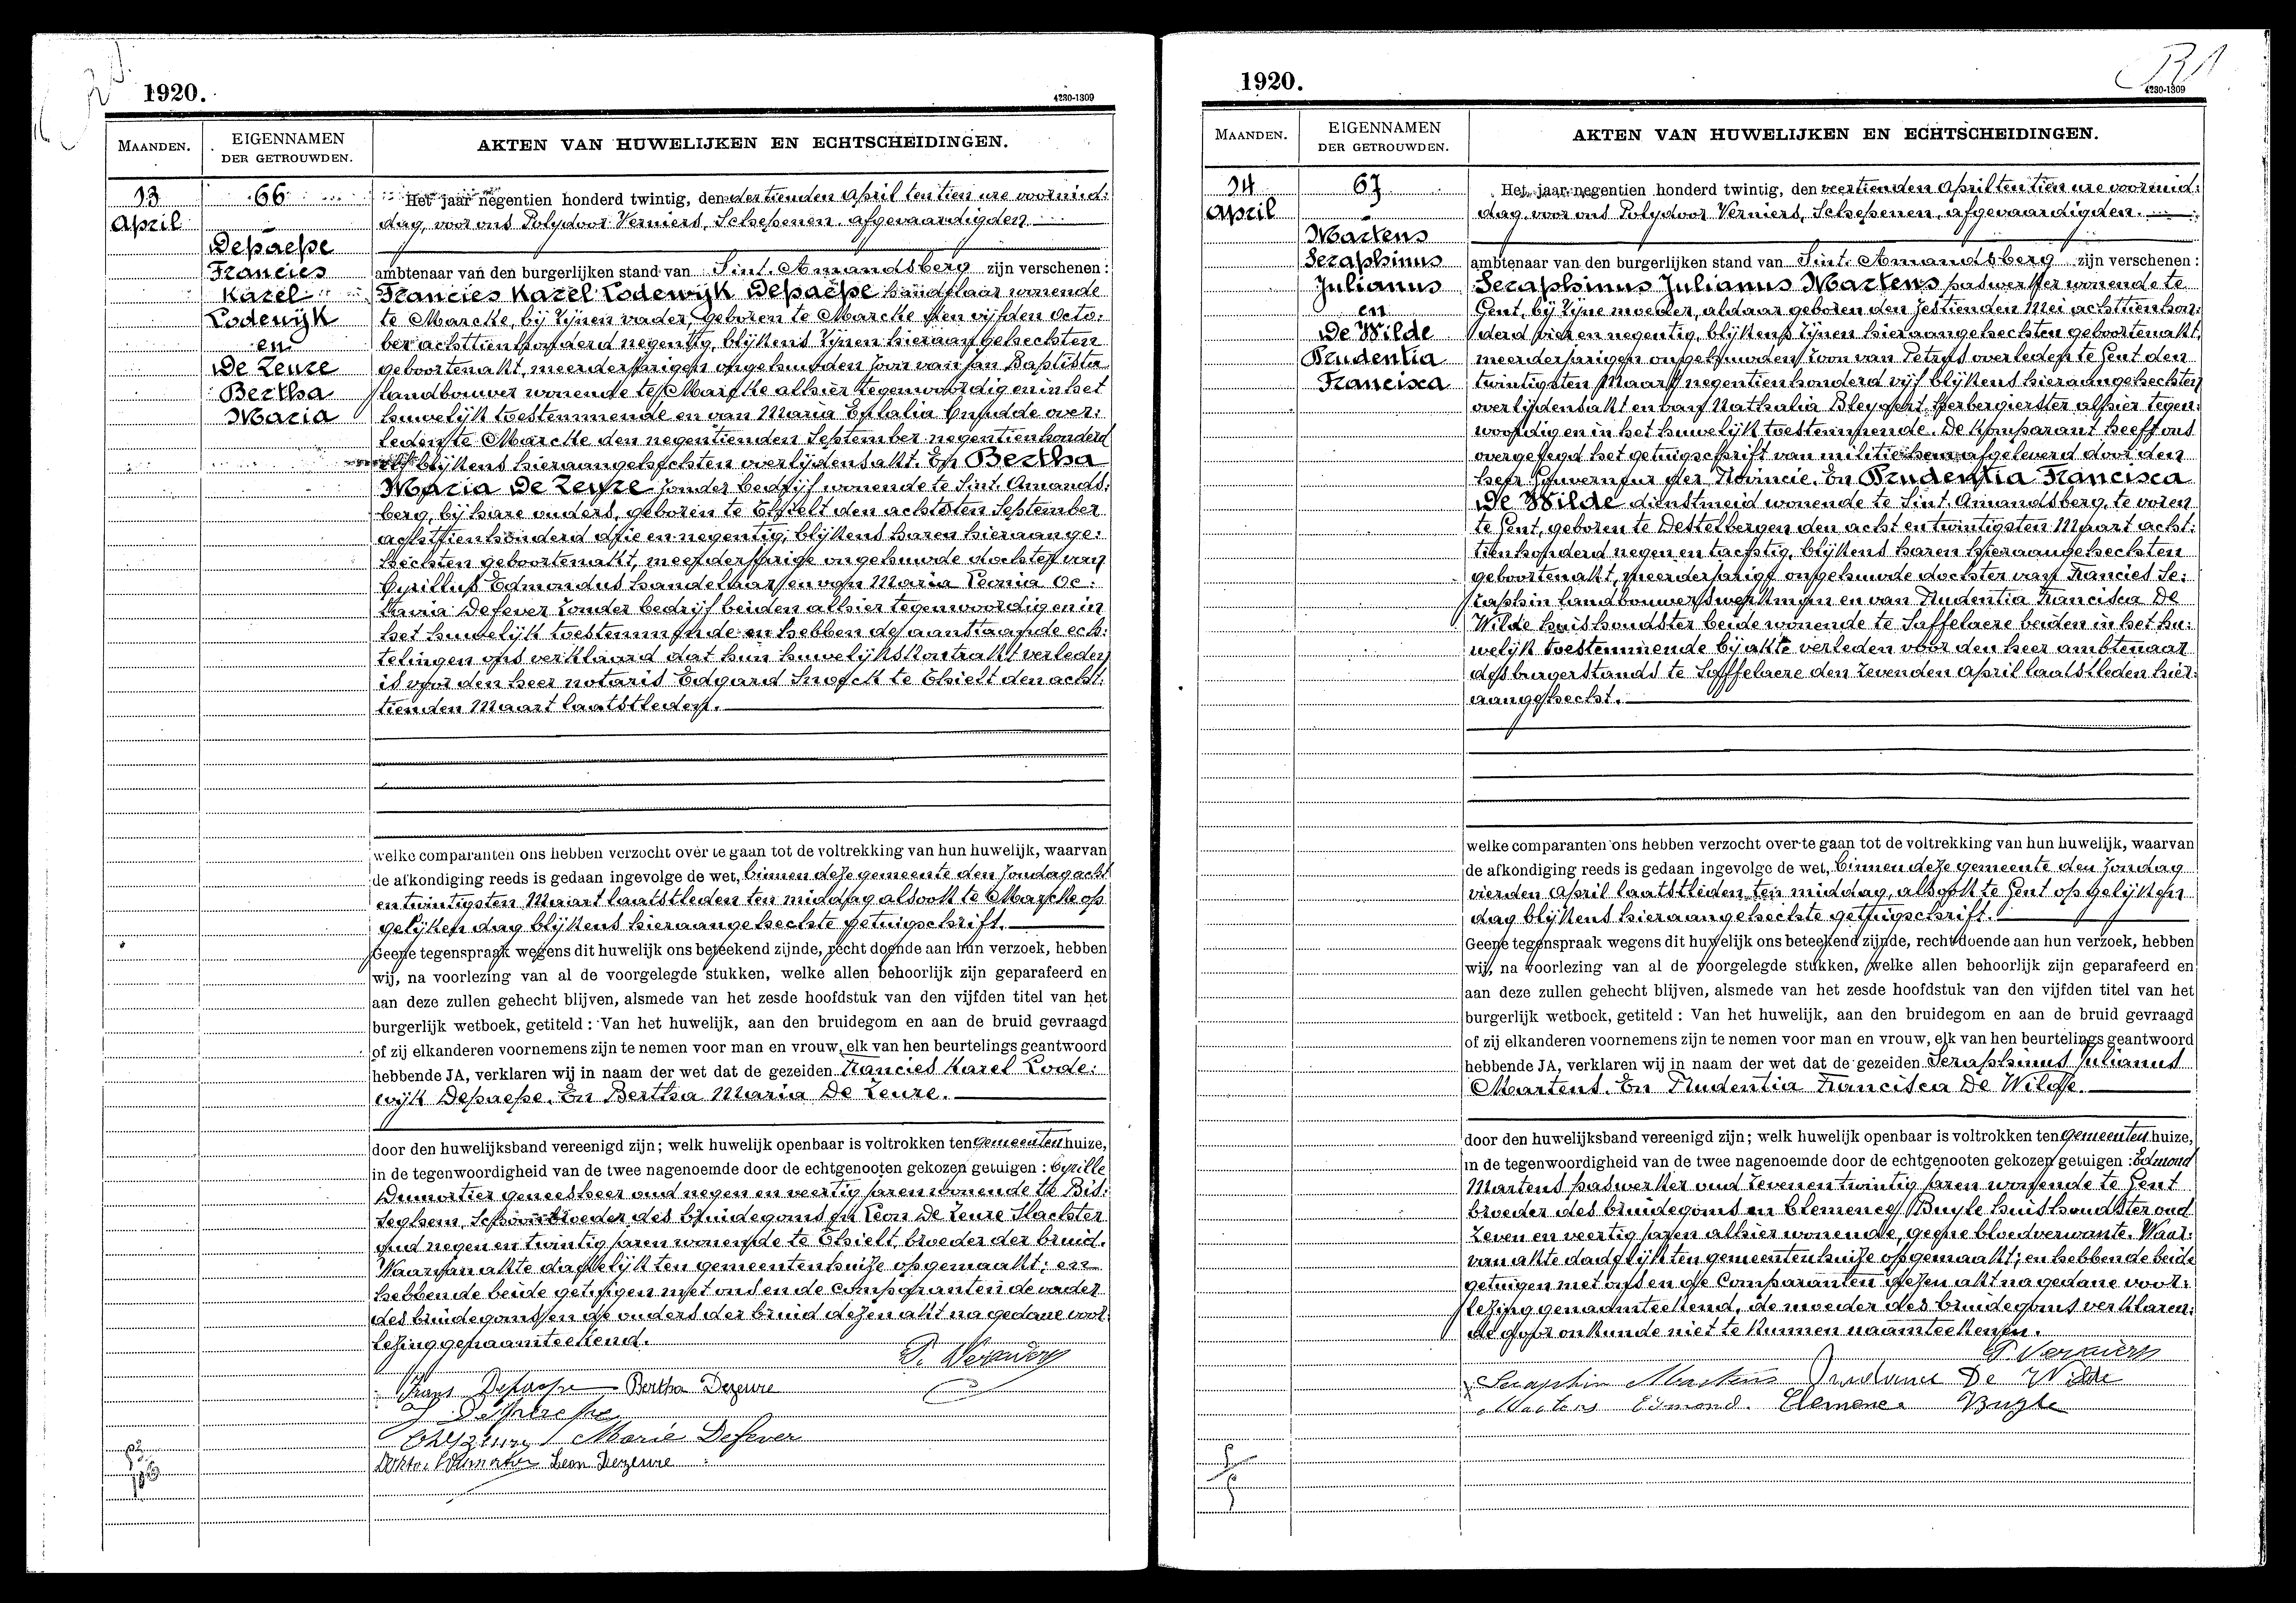 1920.
4230-1309
MAANDEN.
EIGENNAMEN
DER GETROUWDEN.
AKTEN VAN HUWELIJKEN EN ECHTSCHEIDINGEN.
13
April
66
Depaepe
Francies
Karel
Lodewijk
en
De Zeure
Bertha
Maria
Het jaar negentien honderd twintig, den dertienden April ten tien ure voormid:
dag, voor ons Polydoor Verniers, Schepenen afgevaardigden
ambtenaar van den burgerlijken stand van Sint. Amandsberg zijn verschenen:
Francies Karel Lodewijk Depaepe handelaar wonende
te Marcke, bij zijnen vader, geboren te Marcke den vijfden Octo:
ber achttienhonderd negentig, blijkens zijnen hieraangehechten
geboortenakt, meerderjarigen ongehuwden zoon van Jan Baptiste
landbouwer wonende te Marcke alhier tegenwoordig en in het
huwelijk toestemmende en van Maria Eulalia over:
leden te Marcke den negentienden September negentienhonderd
elf blijkens hieraangehechten overlijdensakt. En Bertha
Maria De Zeure zonder bedrijf wonende te Sint. Amands:
berg, bij hare ouders, geboren te Thielt den achtsten September
achttienhonderd drie en negentig, blijkens haren hieraange:
hechten geboortenakt, meerderjarige ongehuwde dochter van
Cyrillus Edmondus handelaar en van Maria Leonia Oc:
tavia Defever zonder bedrijf beiden alhier tegenwoordig en in
het huwelijk toestemmende en hebben de aanstaande ech:
telingen ons verklaard dat hun huwelijkskontrakt verleden
is voor den heer notaris Edgard Snoeck te Thielt den acht:
tienden Maart laatstleden.
welke comparanten ons hebben verzocht over te gaan tot de voltrekking van hun huwelijk, waarvan
de afkondiging reeds is gedaan ingevolge de wet, binnen deze gemeente den Zondag acht
en twintigsten Maart laatstleden ten middag alsook te Marcke op
gelijken dag blijkens hieraangehechte getuigschrift.
Geene tegenspraak wegens dit huwelijk ons beteekend zijnde, recht doende aan hun verzoek, hebben
wij, na voorlezing van al de voorgelegde stukken, welke allen behoorlijk zijn geparafeerd en
aan deze zullen gehecht blijven, alsmede van het zesde hoofdstuk van den vijfden titel van het
burgerlijk wetboek, getiteld: Van het huwelijk, aan den bruidegom en aan de bruid gevraagd
of zij elkanderen voornemens zijn te nemen voor man en vrouw, elk van hen beurtelings geantwoord
hebbende JA, verklaren wij in naam der wet dat de gezeiden Francies Karel Lode:
wijk Depaepe. En Bertha Maria De Zeure.
door den huwelijksband vereenigd zijn; welk huwelijk openbaar is voltrokken ten gemeenten huize,
in de tegenwoordigheid van de twee nagenoemde door de echtgenooten gekozen getuigen: Cyrille
Dumortier geneesheer oud negen en veertig jaren wonende te Bis:
seghem, Schoonbroeder des bruidegoms en Leon De Zeure Slachter
oud negen en twintig jaren wonende te Thielt broeder der bruid.
Waarvan akte dadelijk ten gemeentenhuize opgemaakt; en
hebben de beide getuigen met ons en de comparanten de vader
des bruidegoms en de ouders der bruid dezen akt na gedane voor:
lezing genaamteekend.
P. Verniers
Frans Depaepe Bertha Dezeure
J Depaepe
Marie Defever
Leon Dezeure
1920.
4230-1309
MAANDEN.
EIGENNAMEN
DER GETROUWDEN.
AKTEN VAN HUWELIJKEN EN ECHTSCHEIDINGEN.
14
April
67
Martens
Seraphinus
Julianus
en
De Wilde
Prudentia
Francisca
Het jaar negentien honderd twintig, den veertienden April ten tien ure voormid:
dag, voor ons Polydoor Verniers, Schepenen, afgevaardigden.
ambtenaar van den burgerlijken stand van Sint. Amandsberg zijn verschenen:
Seraphinus Julianus Martens paswerker wonende te
Gent, bij zijne moeder, aldaar geboren den zestienden Mei achttienhon:
derd vier en negentig, blijkens zijnen hieraangehechten geboortenakt,
meerderjarigen ongehuwden zoon van Petrus overleden te Gent den
twintigsten Maart negentienhonderd vijf blijkens hieraangehechten
overlijdensakt en van Nathalia Bleyaert herbergierster alhier tegen:
woordig en in het huwelijk toestemmende. De komparant heeft ons
overgelegd het getuigschrift van militie hem afgeleverd door den
heer Gouverneur der Provincie. En Prudentia Francisca
De Wilde dienstmeid wonende te Sint. Amandsberg, te voren
te Gent, geboren te Destelbergen den acht en twintigsten Maart acht:
tienhonderd negen en tachtig, blijkens haren hieraangehechten
geboortenakt, meerderjarige ongehuwde dochter van Francies Se:
raphin landbouwerswerkman en van Prudentia Francisca De
Wilde huishoudster beide wonende te Saffelaere beiden in het hu:
welijk toestemmende bij akte verleden voor den heer ambtenaar
des burgerstands te Saffelaere den zevenden April laatstleden hier:
aangehecht.
welke comparanten ons hebben verzocht over te gaan tot de voltrekking van hun huwelijk, waarvan
de afkondiging reeds is gedaan ingevolge de wet, binnen deze gemeente den Zondag
vierden April laatstleden, ten middag, alsook te Gent op gelijken
dag blijkens hieraangehechte getuigschrift.
Geene tegenspraak wegens dit huwelijk ons beteekend zijnde, recht doende aan hun verzoek, hebben
wij, na voorlezing van al de voorgelegde stukken, welke allen behoorlijk zijn geparafeerd en
aan deze zullen gehecht blijven, alsmede van het zesde hoofdstuk van den vijfden titel van het
burgerlijk wetboek, getiteld: Van het huwelijk, aan den bruidegom en aan de bruid gevraagd
of zij elkanderen voornemens zijn te nemen voor man en vrouw, elk van hen beurtelings geantwoord
hebbende JA, verklaren wij in naam der wet dat de gezeiden Seraphinus Julianus
Martens. En Prudentia Francisca De Wilde.
door den huwelijksband vereenigd zijn; welk huwelijk openbaar is voltrokken ten gemeenten huize,
in de tegenwoordigheid van de twee nagenoemde door de echtgenooten gekozen getuigen: Edmond
Martens paswerker oud zeven en twintig jaren wonende te Gent
broeder des bruidegoms en Clemence Buyle huishoudster oud
zeven en veertig jaren alhier wonende, geene bloedverwante. Waar:
van akte dadelijk ten gemeentenhuize opgemaakt; en hebben de beide
getuigen met ons en de Comparanten dezen akt na gedane voor:
lezing genaamteekend, de moeder des bruidegoms verklaren:
de door onkunde niet te kunnen naamteekenen.
P. Verniers
Seraphin Martens Prudence De Wilde
Martens Edmond. Clemence Buyle